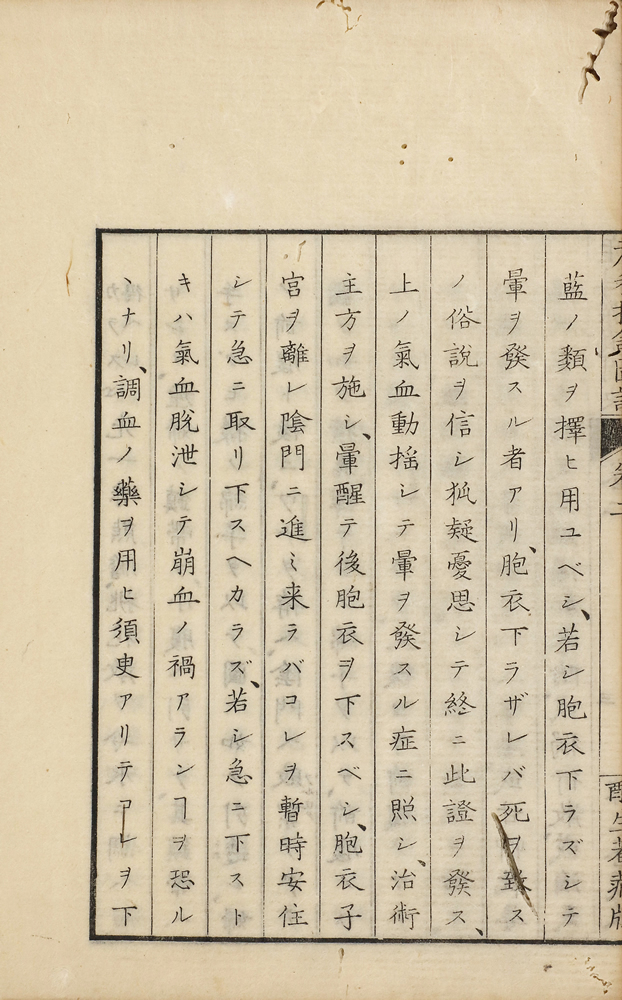 藍ノ類ヲ擇ヒ用ユベシ、若シ胞衣下ラズシテ
暈ヲ發スル者アリ、胞衣下ラザレバ死ヲ致ス
ノ俗說ヲ信シ狐疑憂思シテ終ニ此證ヲ發ス、
上ノ氣血動揺シテ暈ヲ發スル症ニ照シ、治術
主方ヲ施シ、暈醒テ後胞衣ヲ下スベシ、胞衣子
宮ヲ離レ陰門ニ進ミ来ラバコレヲ暫時安住
シテ急ニ取リ下スヘカラズ、若シ急ニ下スト
キハ氣血脫泄シテ崩血ノ禍アランヿヲ恐ル
ヽナリ、調血ノ藥ヲ用ヒ須臾アリテコレヲ下